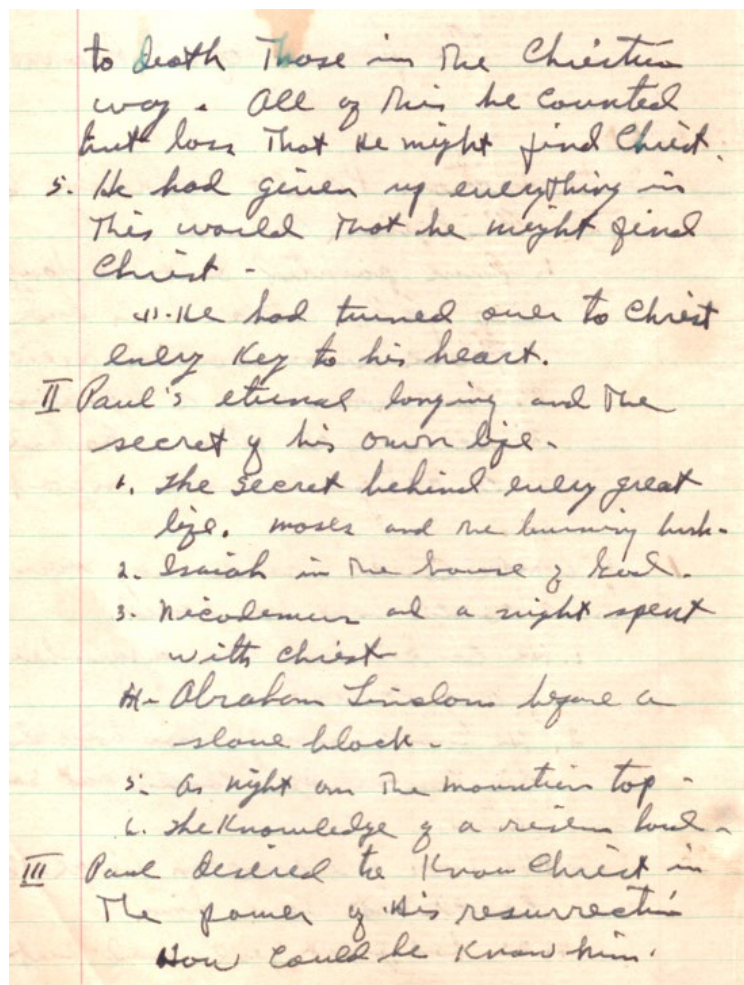 to death Those in the Christian
way. All of this he counted
but loss That He might find Christ.
5. He had given up everything in
This world That he might find
Christ -
(1). He had turned over to Christ
every Key to his heart.
II Paul's eternal longing and the
secret of his own life.
1. The secret behind every great
life. Moses and the burning bush.
2. Isaiah in the house of God.
3. Nicodemus and a night spent
with Christ
4. Abraham Lincoln before a
slave block.
5. A night on the mountain top.
6. The Knowledge of a risen Lord.
III Paul desired to Know Christ in
The power of His resurrection
How could he Know him.